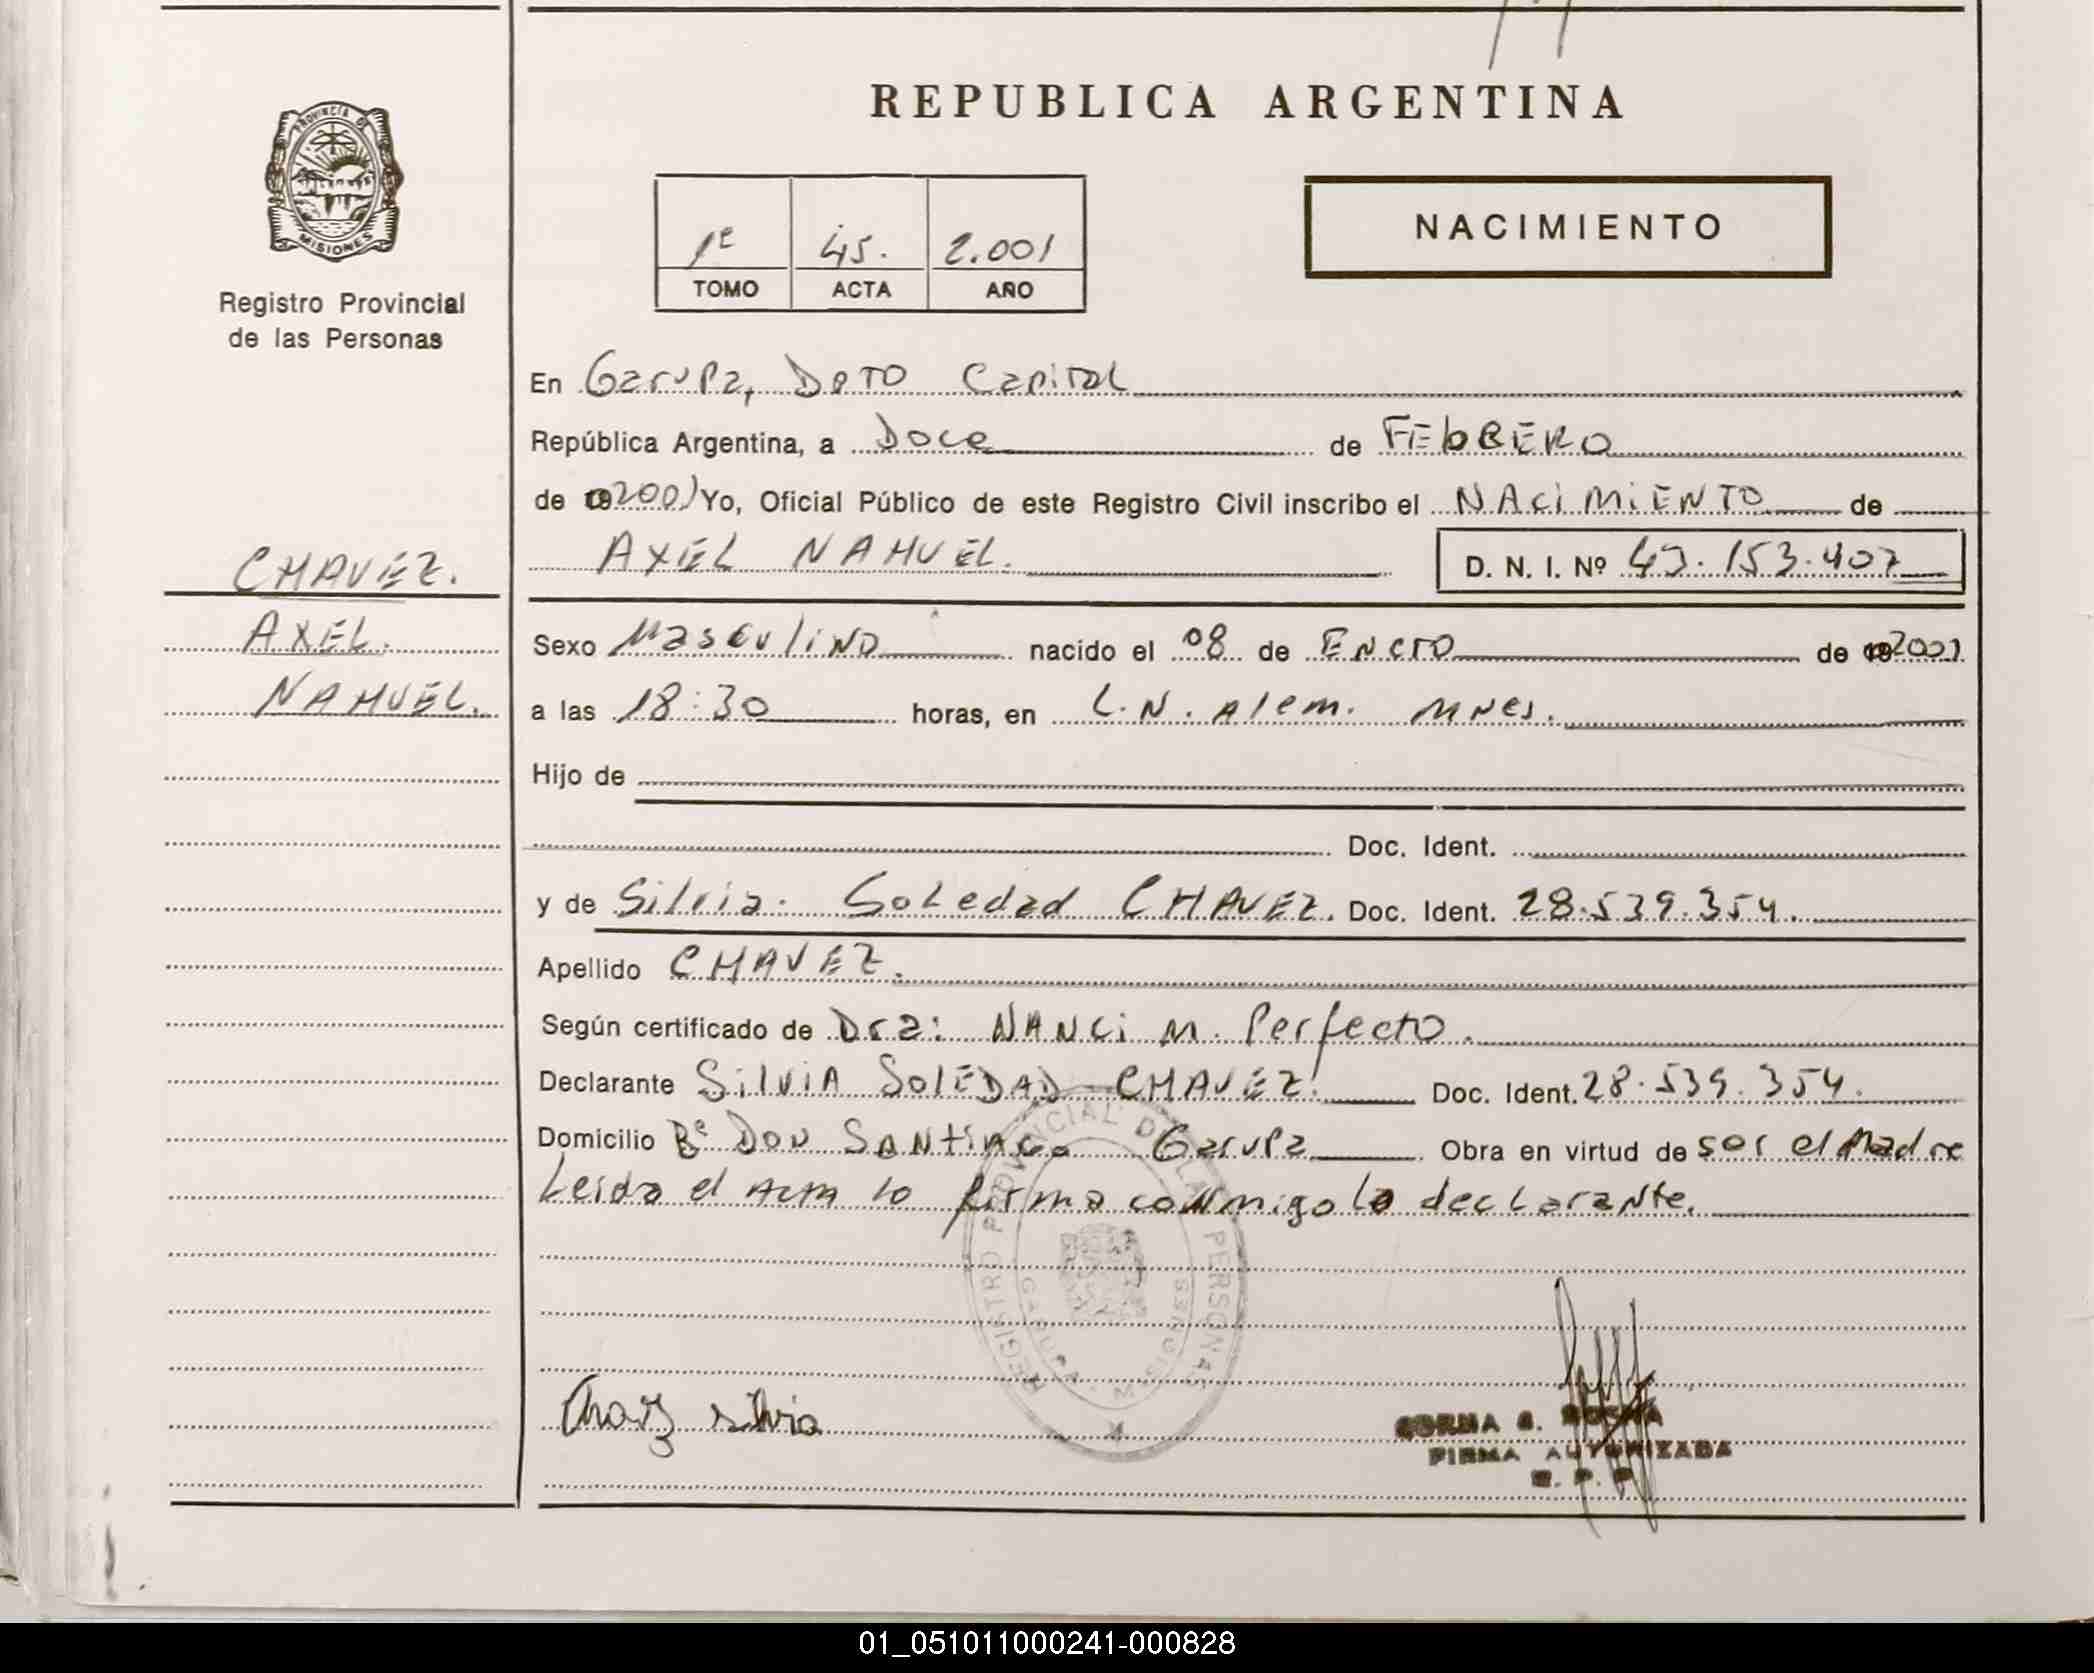 REPUBLICA ARGENTINA
PROVINCIA DE
MISIONES
Registro Provincial
de las Personas
1º 45. 2.001
TOMO ACTA AÑO
NACIMIENTO
En Garupa, Dpto Capital
República Argentina, a Doce de FEbRERO
de 2001 Yo, Oficial Público de este Registro Civil inscribo el NACiMiENTO de
CHAVEZ.
AXEL NAHUEL. D. N. I. Nº 43.153.407
AXEL.
Sexo Masculino nacido el 08 de Enero de 2001
NAHUEL.
a las 18:30 horas, en L.N. Alem. Mnes.
Hijo de
Doc. Ident.
y de Silvia. Soledad CHAVEZ. Doc. Ident. 28.539.354.
Apellido CHAVEZ.
Según certificado de Dra: NANCi M. Perfecto.
Declarante SilviA SolEDAD CHAVEZ. Doc. Ident. 28.539.354.
Domicilio Bº Don SANtiAGo Garupa Obra en virtud de ser el Madre
Leida el Acta lo firma conmigo la declarante.
REGISTRO PROVINCIAL DE LAS PERSONAS
GARUPA - MISIONES
Chavez silvia
FIRMA AUTORIZADA
R. P. P
01_051011000241-000828